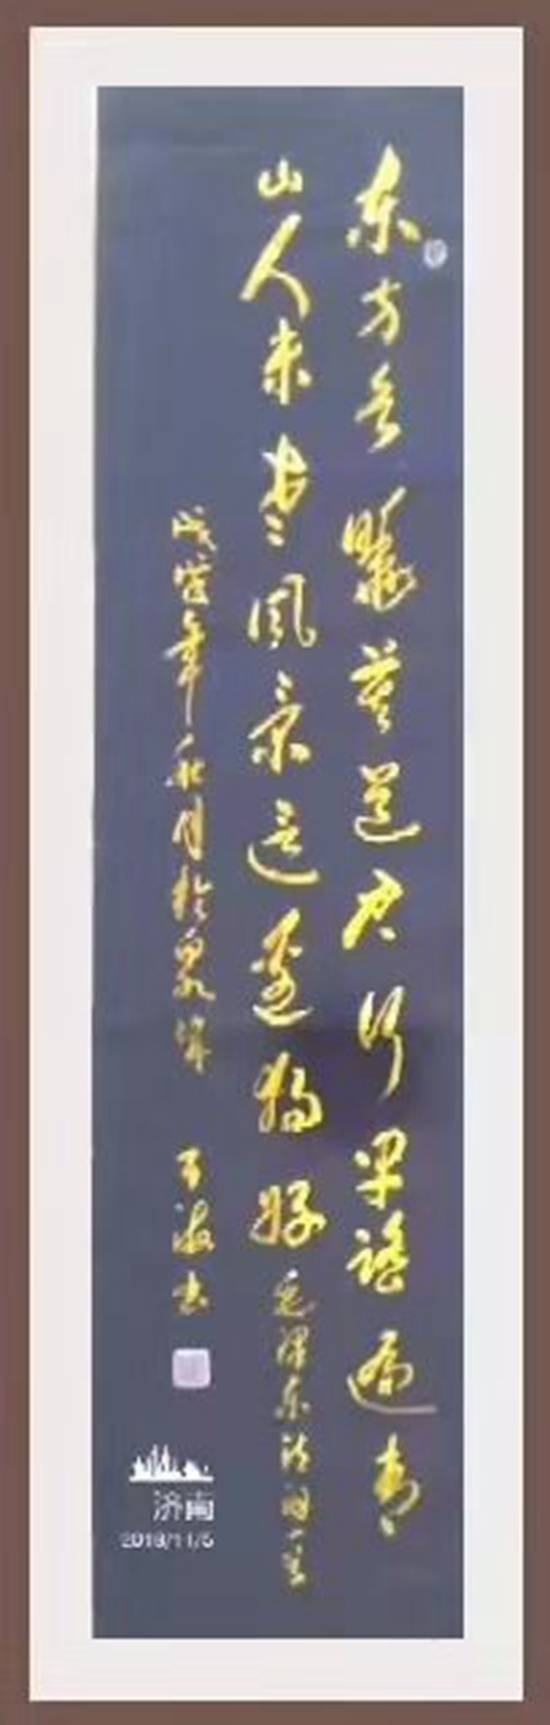 东方欲曉莫道君行早踏遍青
山人未老風景这边独好毛泽东诗词一首
戊戌年秋月於泉城 海书
济南
2018/11/5